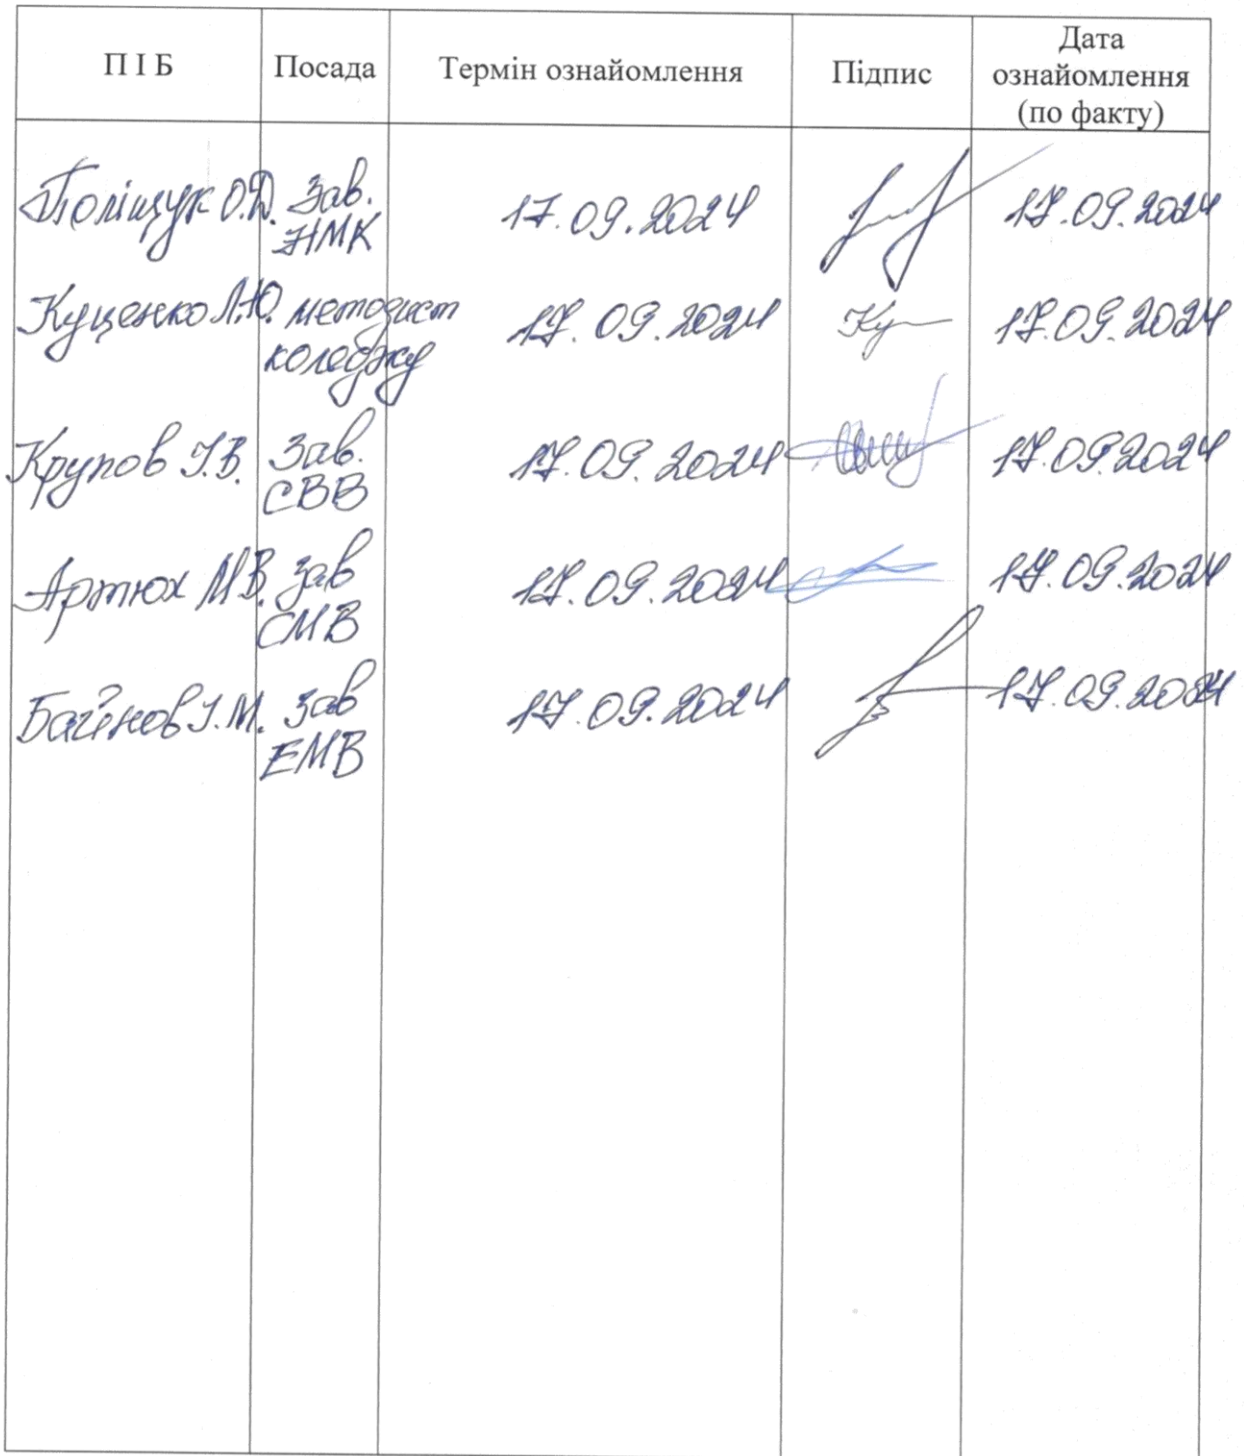 П І Б Посада Термін ознайомлення Підпис Дата ознайомлення (по факту)
Поліщук О.Д. Зав. 17.09.2024 17.09.2024
НМК
Куценко Л.Ю. методист 17.09.2024 Ку 17.09.2024
коледжу
Крупов І.В. Зав. 17.09.2024 17.09.2024
СВВ
Артюх М.В. зав 17.09.2024 17.09.2024
СМВ
Байнов І.М. зав 17.09.2024 17.09.2024
ЕМВ